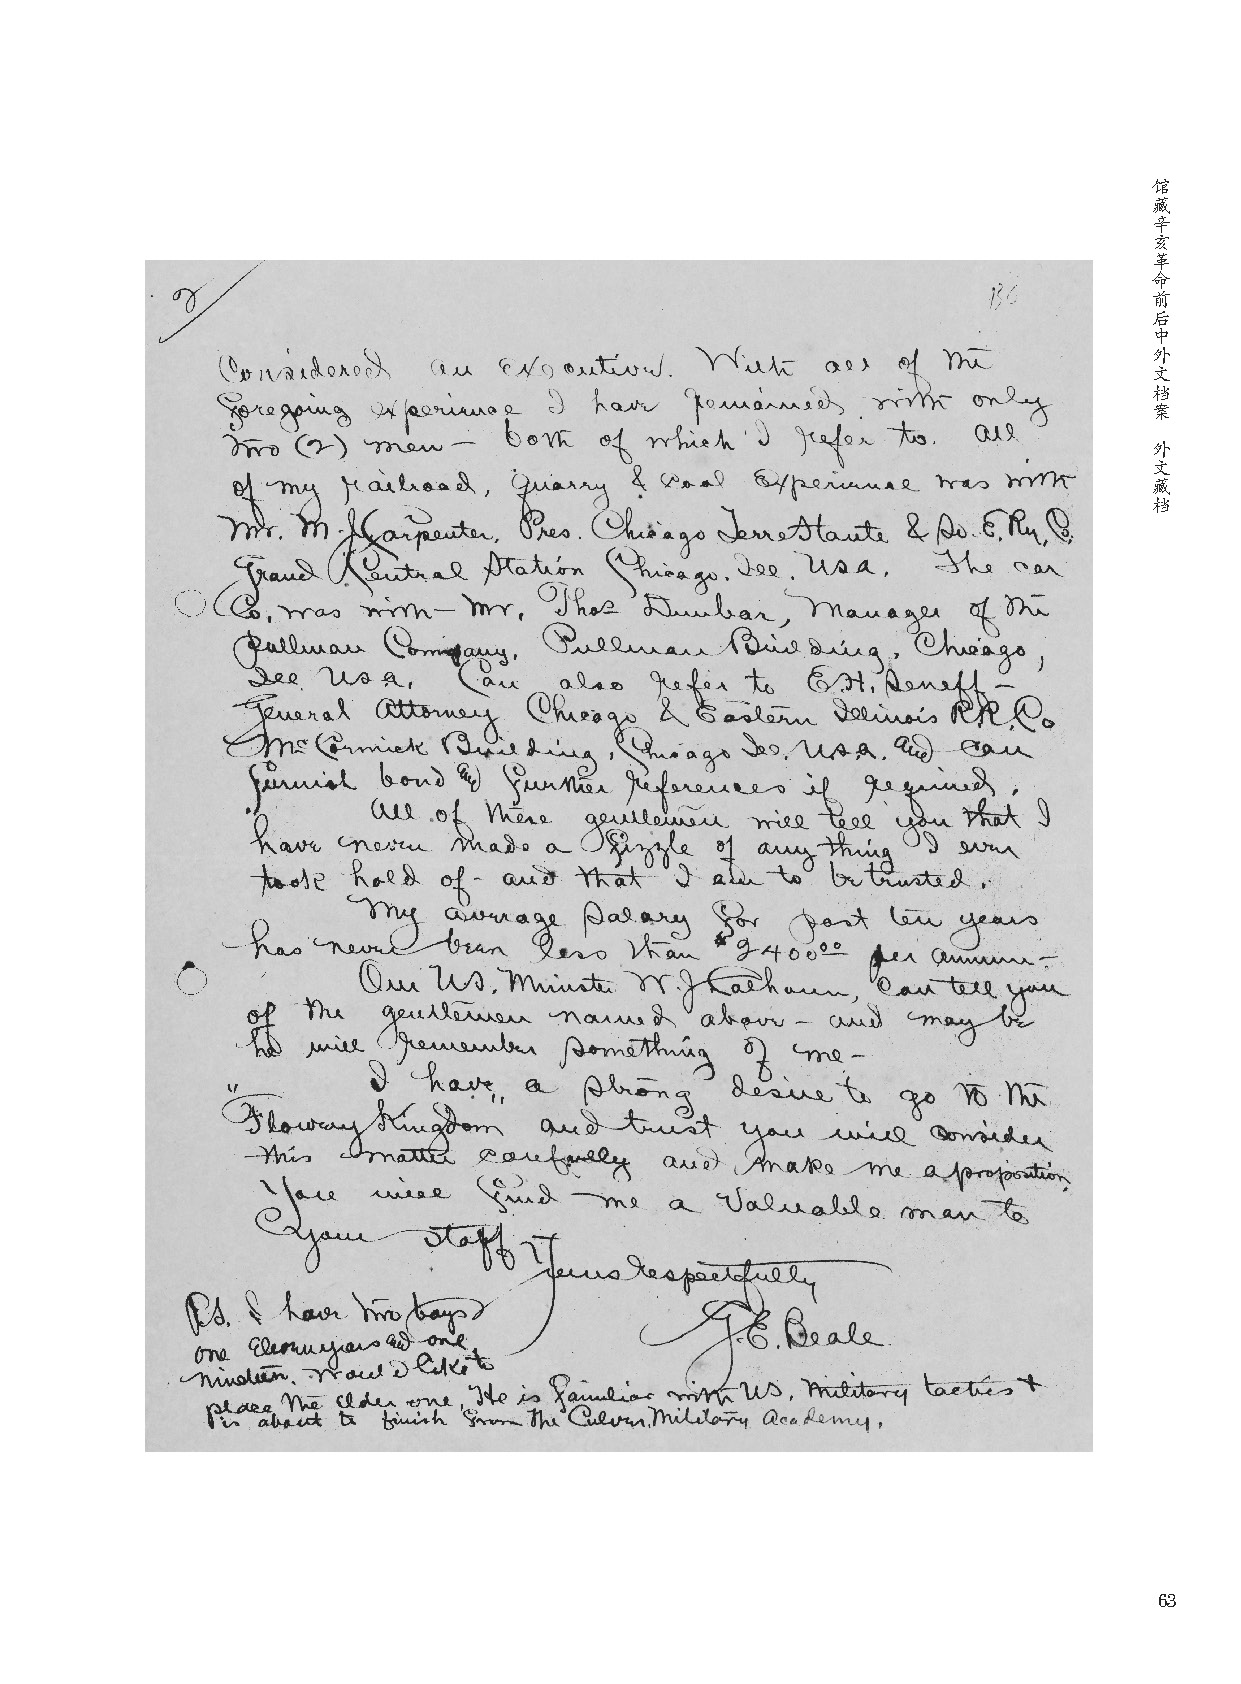 馆藏辛亥革命前后中外文档案 外文藏档
2
136
Considered an Executive. With all of the
foregoing experience I have remained with only
two (2) men — both of which I refer to. All
of my railroad, quarry & coal Experience was with
Mr. M. J. Carpenter, Pres. Chicago Terre Haute & So. E. Ry. Co.
Grand Central Station Chicago. Ill. USA. The car
Co. was with — Mr. Thos Dunbar, Manager of the
Pullman Company, Pullman Building, Chicago,
Ill. USA. Can also refer to E.H. Seneff —
General Attorney Chicago & Eastern Illinois RR. Co
McCormick Building, Chicago Ill. USA. and can
furnish bond and further references if required.
All of these gentlemen will tell you that I
have never made a fizzle of any thing I ever
took hold of - and that I am to be trusted.
My average salary for past ten years
has never been less than $2400.00 per annum —
Our US. Minister W. J Calhoun, can tell you
of the gentlemen named above — and may be
he will remember something of me —
I have a strong desire to go to the
"Flowery Kingdom" and trust you will consider
this matter carefully and make me a proposition.
You will find me a valuable man to
your staff.
Yours respectfully
G. E. Beale
P.S. I have two boys
one Eleven years and one
nineteen. Would like to
place the elder one, He is familiar with US. Military tactics +
is about to finish from the Culver Military Academy.
63